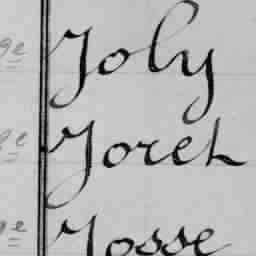 ge Joly
ge Joret
ge Josse